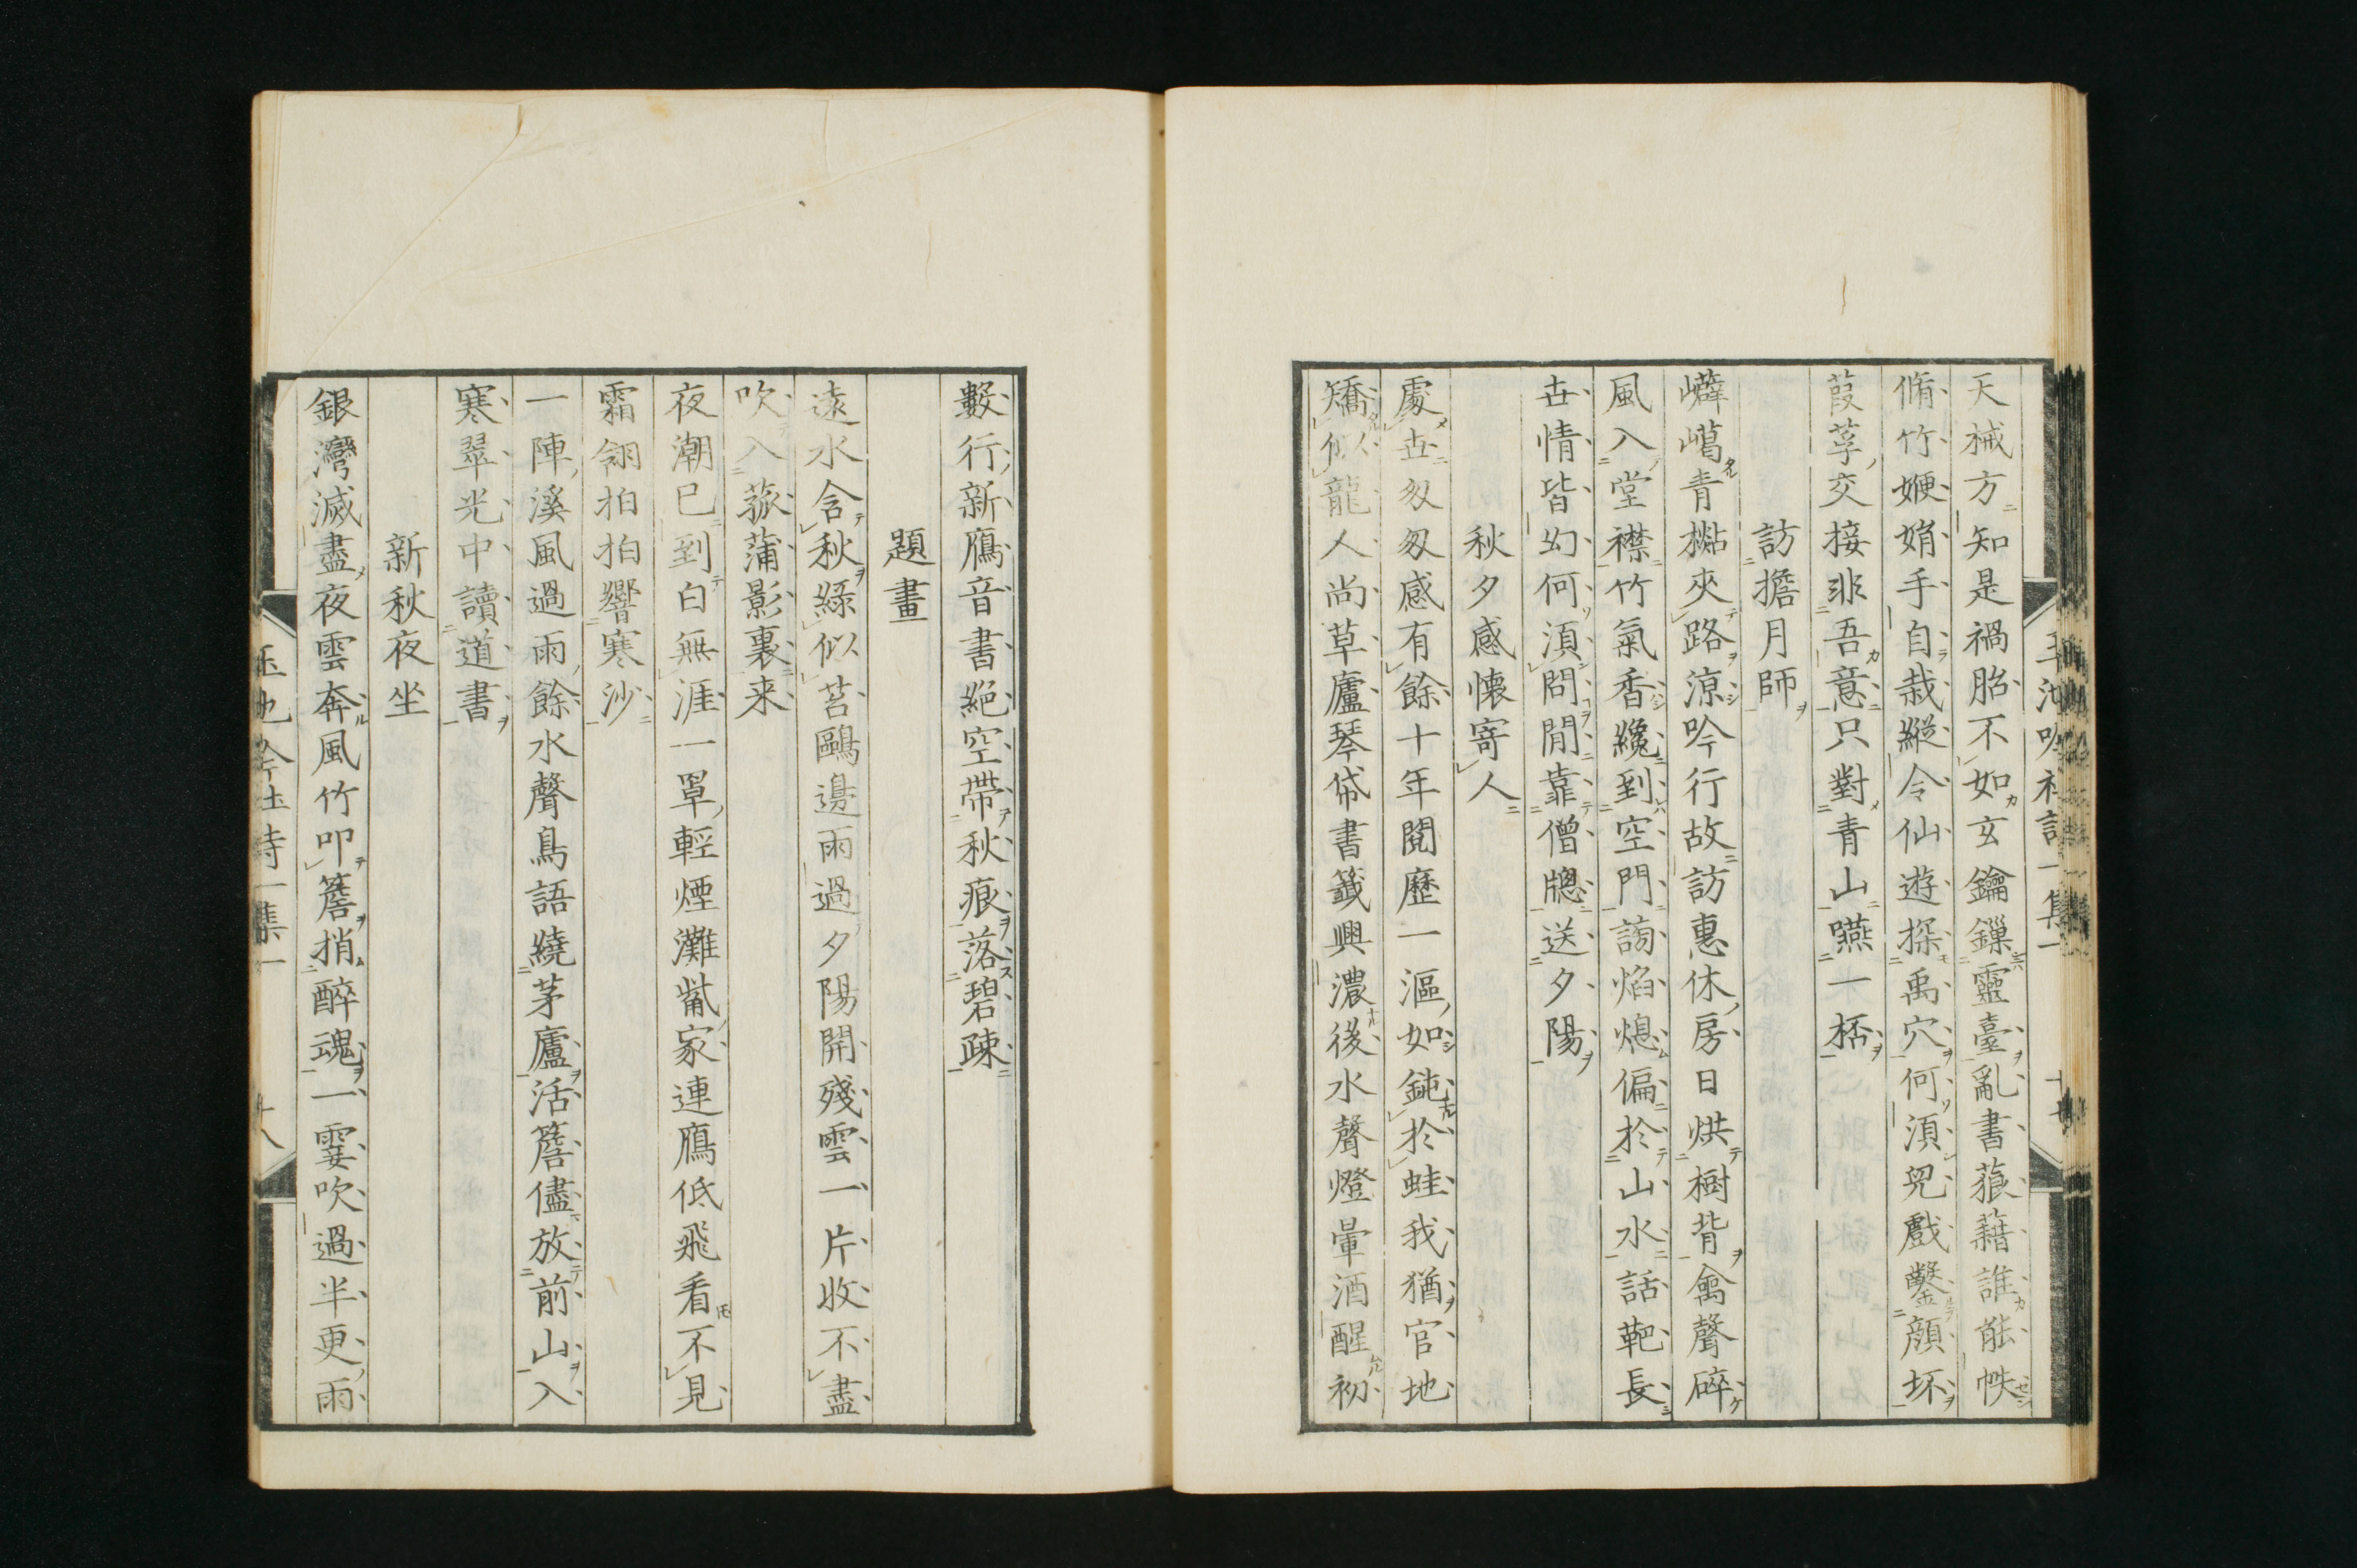 天械方知是禍胎不如玄鑰鏁靈臺亂書蒗藉誰能帙
脩竹㛹娟手自栽縱令仙遊探禹穴何須兒戲鑿顔坏
葭莩交接非吾意只對青山嚥一桮
訪擔月師
嶭嶱青㮇夾路涼吟行故訪惠休房日烘樹背禽聲碎
風入堂襟竹氣香纔到空門詢焰熄偏於山水話靶長
世情皆幻何須問閒靠僧牕送夕陽
秋夕感懷寄人
處世匆匆感有餘十年閱歷一漚如鈍於蛙我猶官地
矯似龍人尚草廬琴帒書籤興濃後水聲燈暈酒醒初
數行新鴈音書絕空帶秋痕落碧疎
題畫
遠水含秋綠似苔鷗邊雨過夕陽開殘雲一片收不盡
吹入菰蒲影裏来
夜潮已到白無涯一罩輕煙灘觜家連鴈低飛看不見
霜翎拍拍響寒沙
一陣溪風過雨餘水聲鳥語繞茅廬活簷儘放前山入
寒翠光中讀道書
新秋夜坐
銀灣滅盡夜雲奔風竹叩簷捎醉魂一霎吹過半更雨